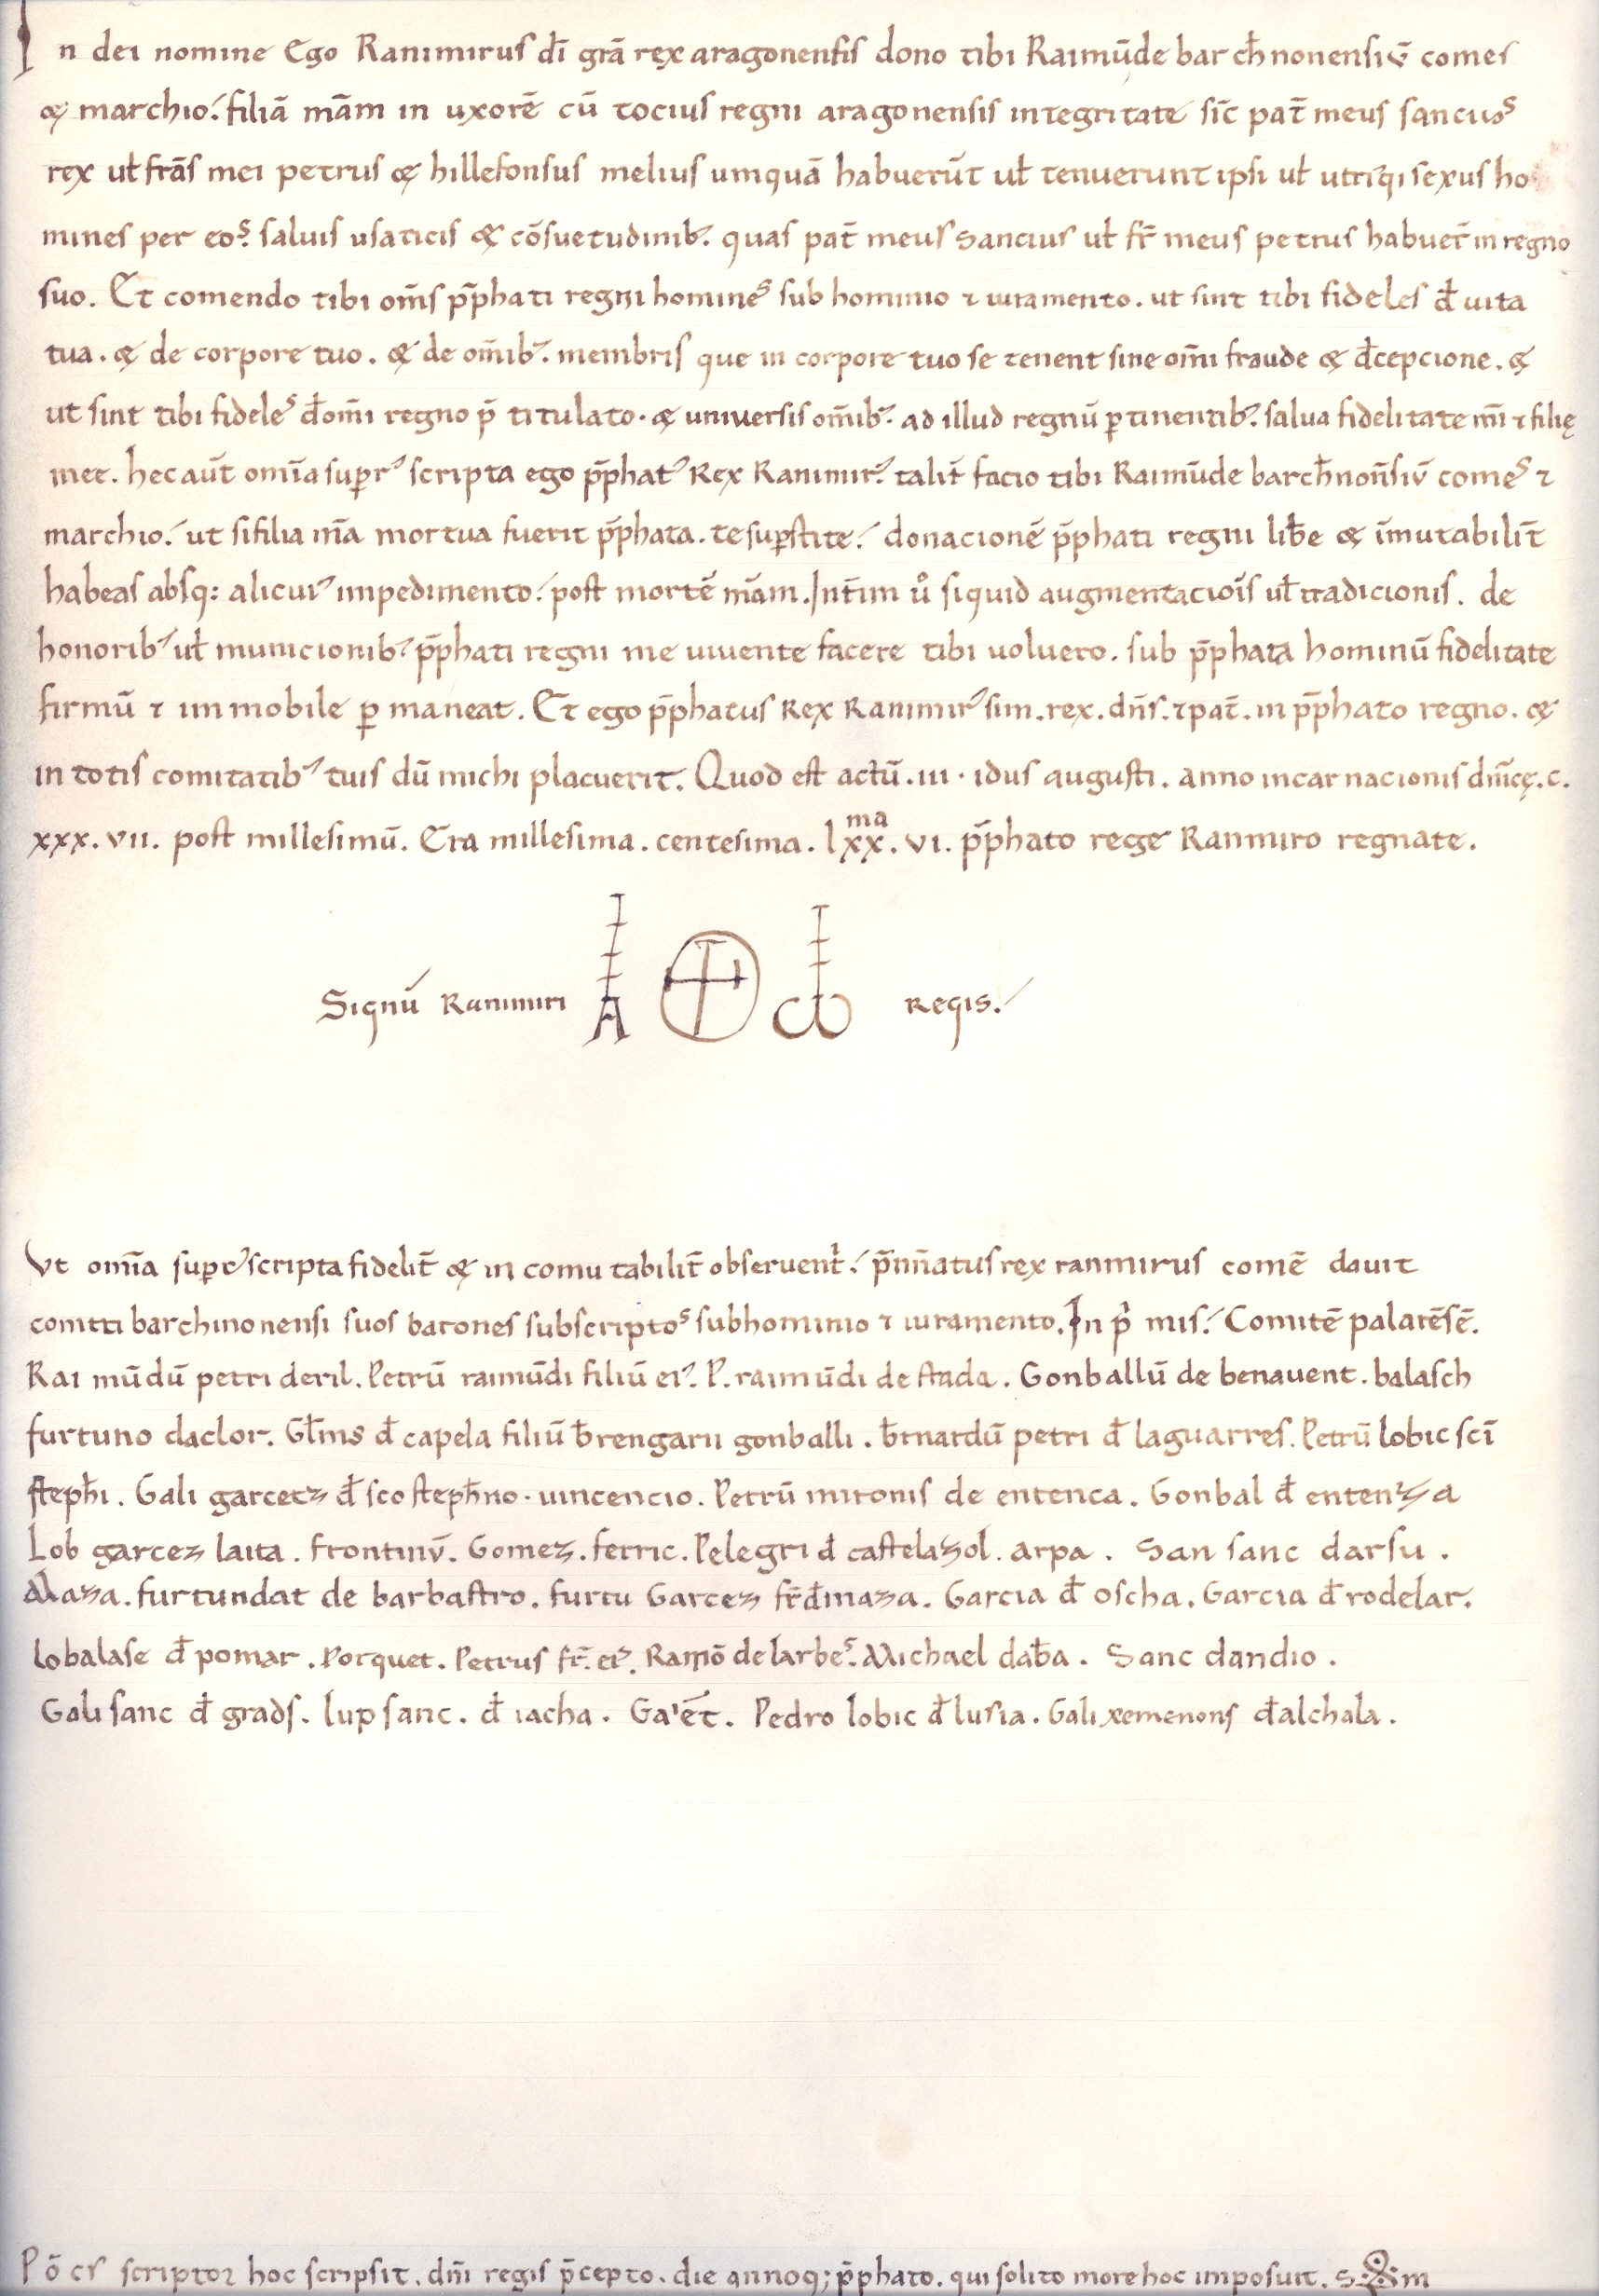 In dei nomine Ego Ranimirus dī grā rex aragonensis dono tibi Raimūde barch̄nonensiū comes
& marchio. filiā mām in uxorē cū tocius regni aragonensis integritate sīc pat̄ meus sancius
rex ut̄ frās mei petrus & hillefonsus melius umquā habuerūt ut̄ tenuerunt ipsi ut̄ utriꝰqi sexus ho
mines per eos. saluis usaticis & cōsuetudinibꝰ. quas pat̄ meus sancius ut̄ fr̄ meus petrus habuer̄ in regno
suo. Et comendo tibi om̄s p̄phati regni homines sub hominio ⁊ iuramento. ut sint tibi fideles đ uita
tua. & de corpore tuo. & de om̄ibꝰ. membris que in corpore tuo se tenent sine om̄i fraude & đcepcione. &
ut sint tibi fideles đ om̄i regno p̄ titulato. & universis om̄ibꝰ. ad illud regnū ꝑtinentibꝰ. salua fidelitate m̄i ⁊ filię
mee. hec aūt om̄ia suꝑꝰ scripta ego p̄phatꝰ Rex Ranimirꝰ. talit̄ facio tibi Raimūde barch̄non̄siū comes ⁊
marchio. ut si filia m̄a mortua fuerit p̄phata. te suꝑstite. donacionē p̄phati regni lib̄e & īmutabilit̄
habeas absq: alicuiꝰ impedimento. post mortē mām. Int̄im ů siquid augmentacioīs ut̄ tradicionis. de
honoribꝰ ut̄ municionibꝰ p̄phati regni me uiuente facere tibi uoluero. sub p̄phata hominū fidelitate
firmū ⁊ immobile ꝑ maneat. Et ego p̄phatus Rex Ranimirꝰ sim. rex. dn̄s. ⁊ pat̄. in p̄phato regno. &
in totis comitatibꝰ tuis dū michi placuerit. Quod est actū. iii. idus augusti. anno incarnacionis dn̄icę. c.
xxx. vii. post millesimū. Era millesima. centesima. lxxma. vi. p̄phato rege Ranimiro regnate.
Signū Ranimiri A ω Regis.
Vt om̄ia suꝑꝰscripta fidelit̄ & in comutabilit̄ obseruent̄. p̄nn̄atus rex ranimirus comē dauit
comiti barchinonensi suos barones subscriptos sub hominio ⁊ iuramento. In p̄ mis. Comitē palarēsē.
Raimūdū petri deril. Petrū raimūdi filiū eiꝰ. P. raimūdi de stada. Gonballū de benauent. balasch
furtuno daclor. Gl̄ms đ capela filiū b̄rengarii gonballi. b̄rnardū petri đ laguarres. Petrū lobic scī
steph̄i. Gali garcetz đ sco steph̄no. uincencio. Petrū mironis de entenca. Gonbal đ entenza
Lob garcez laita. frontinū. Gomez. ferric. Pelegri đ castelazol. arpa. San sanc darsu.
Maza. furtundat de barbastro. furtu Garcez fr̄ đ maza. Garcia đ oscha. Garcia đ rodelar.
lobalase đ pomar. Porquet. Petrus fr̄. eiꝰ. Ramō de larbes. Michael dab̄a. Sanc dandio.
Gali sanc đ grads. lup sanc. đ iacha. Ga'ēt. Pedro lobic đ lusia. Gali xemenons đ alchala.
Pō cs scriptor hoc scripsit. dn̄i regis p̄cepto. die annoq; p̄phato. qui solito more hoc imposuit. s m